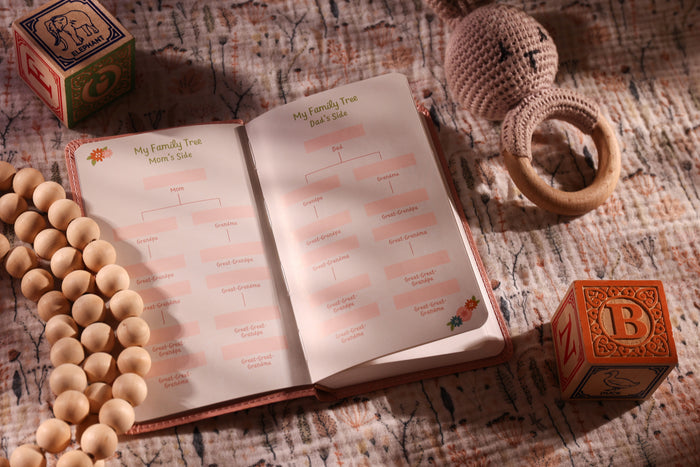 ELEPHANT
My Family Tree
Mom's Side
Mom
Grandpa
Great-Grandpa
Great-Grandma
Great-Great-
Grandpa
Great-Great-
Grandma
Grandma
Great-Grandpa
Great-Grandma
Great-Great-
Grandpa
Great-Great-
Grandma
My Family Tree
Dad's Side
Dad
Grandpa
Great-Grandpa
Great-Grandma
Great-Great-
Grandpa
Great-Great-
Grandma
Grandma
Great-Grandpa
Great-Grandma
Great-Great-
Grandpa
Great-Great-
Grandma
B
N
DUCK